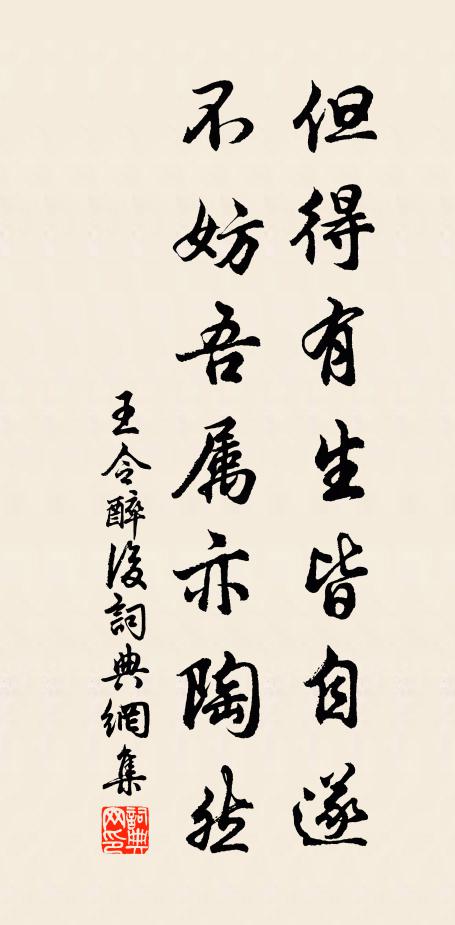 但得有生皆自遂
不妨吾属亦陶然
王令醉後詞典網集
詞典网印